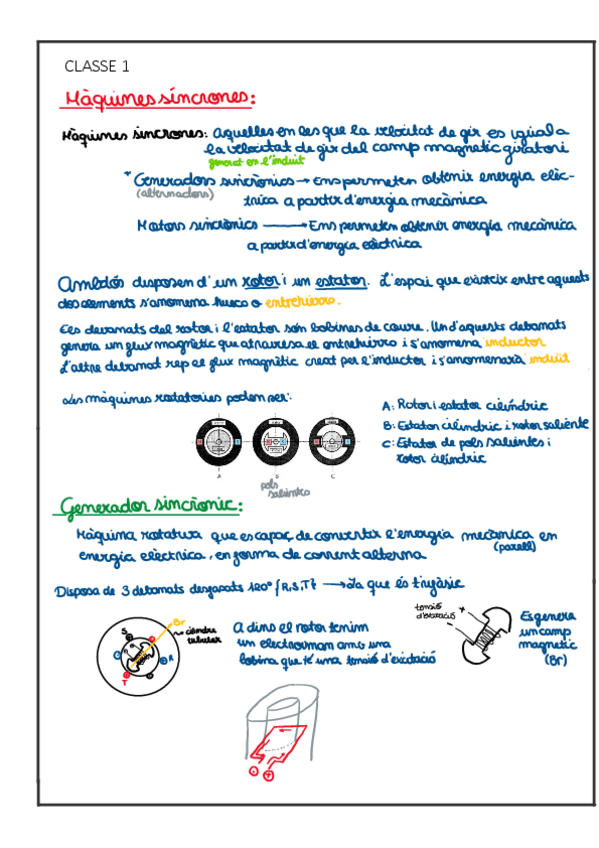 CLASSE 1
Màquines síncrones:
Màquines síncrones: Aquelles en les que la velocitat de gir es igual a
la velocitat de gir del camp magnètic giratori
generat en l'induit
* Generadors sincrònics → Ens permeten obtenir energia elèc-
(alternadors)
trica a partir d'energia mecànica
Motors sincrònics → Ens permeten obtenir energia mecànica
a partir d'energia elèctrica
Ambdós disposen d'un rotor i un estator. L'espai que existeix entre aquests
dos elements s'anomena hueco o entrehierro.
Els devanats del rotor i l'estator són bobines de coure. Un d'aquests debamats
genera un flux magnètic que atravesa el entrehierro i s'anomena inductor
L'altre debamat rep el flux magnètic creat per l'inductor i s'anomenarà induït
Les màquines rotatories poden ser:
A: Rotor i estator cilíndric
B: Estator cilíndric i rotor saliente
C: Estator de pols salientes i
rotor cilíndric
A B C
pols
salientes
Generador sincrònic:
Màquina rotativa que es capaç de convertir l'energia mecànica en
(parell)
energia elèctrica, en forma de corrent alterna
Disposa de 3 debamats desfasats 120° (R,S,T) → Ja que és trifàsic
Br
S
R
T
cilindre
tubular
A dins el rotor tenim
un electroiman amb una
bobina que té una tensió d'excitació
tensió
d'excitació
+
-
Es genera
un camp
magnetic
(Br)
- +